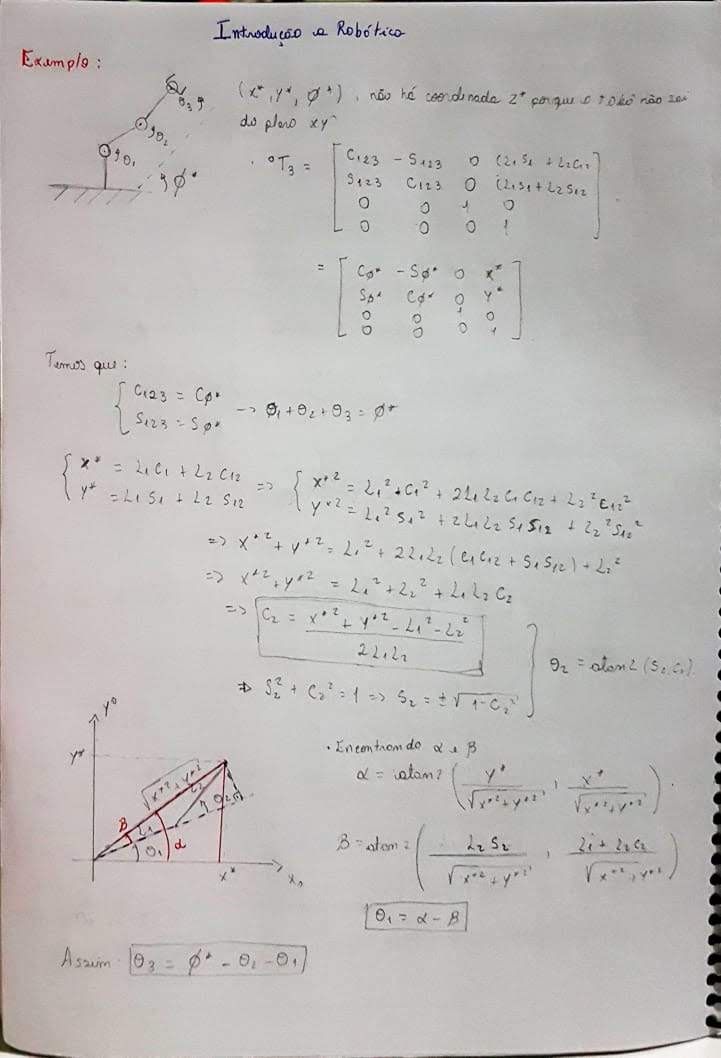 Introdução a Robótica
Exemplo:
(x*, y*, φ*), não há coordenada z* porque o robô não sai
do plano xy
θ3
θ2
θ1
φ*
⁰T3 = [ C123 −S123 0 (L1S1 + L2C12
S123 C123 0 (L1S1 + L2S12
0 0 1 0
0 0 0 1 ]
= [ Cφ* −Sφ* 0 x*
Sφ* Cφ* 0 y*
0 0 1 0
0 0 0 1 ]
Temos que:
{ C123 = Cφ*
S123 = Sφ* → θ1 + θ2 + θ3 = φ*
{ x* = L1C1 + L2C12 => { x*² = L1² + C1² + 2L1L2C1C12 + L2²C12²
y* = L1S1 + L2S12 y*² = L1²S1² + 2L1L2S1S12 + L2²S12²
=> x*² + y*² = L1² + 2L1L2(C1C12 + S1S12) + L2²
=> x*² + y*² = L1² + L2² + L1L2C2
=> C2 = (x*² + y*² − L1² − L2²) / 2L1L2
=> S2² + C2² = 1 => S2 = ±√(1−C2²)
θ2 = atan2(S2,C2)
y⁰
y*
√(x*²+y*²)
L2
θ2
B
L1
θ1
α
x*
x0
• Encontrando α e β
α = atan2( y* / √(x*²+y*²) , x* / √(x*²+y*²) ).
B = atan2( L2S2 / √(x*²+y*²) , L1 + L2C2 / √(x*²+y*²) )
θ1 = α − B
Assim: θ3 = φ* − θ2 − θ1